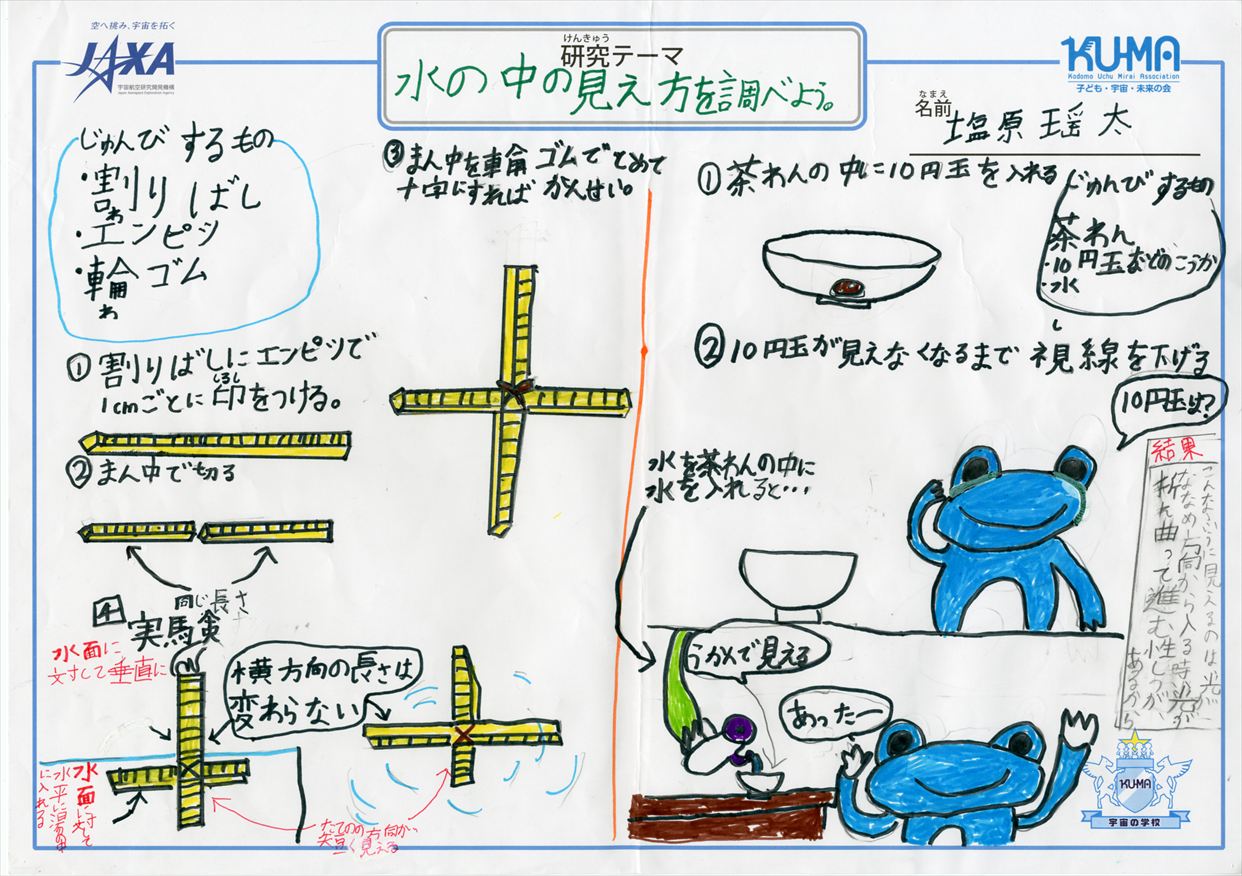 空へ挑み、宇宙を拓く
JAXA
宇宙航空研究開発機構
Japan Aerospace Exploration Agency
けんきゅう
研究テーマ
水の中の見え方を調べよう。
KU-MA
Kodomo Uchu Mirai Association
子ども・宇宙・未来の会
なまえ
名前
塩原瑶太
じゅんびするもの
・割りばし
わ
・エンピツ
・輪ゴム
わ
①割りばしにエンピツで
1cmごとに印をつける。
しるし
②まん中で切る
同じ長さ
③まん中を輪ゴムでとめて
十字にすればかんせい。
4
実験
水面に
対して垂直に
横方向の長さは
変わらない
水面に対して
水平に
に入れる
たての方向が
短く見える
①茶わんの中に10円玉を入れる
じゅんびするもの
茶わん
・10円玉などのこうか
・水
②10円玉が見えなくなるまで視線を下げる
10円玉は?
水を茶わんの中に
水を入れると…
うかんで見える
あったー
結果
こんなふうに見えるのは光が
ななめ方向から入る時光が
折れ曲って進む性しつが
あるから
KU-MA
宇宙の学校